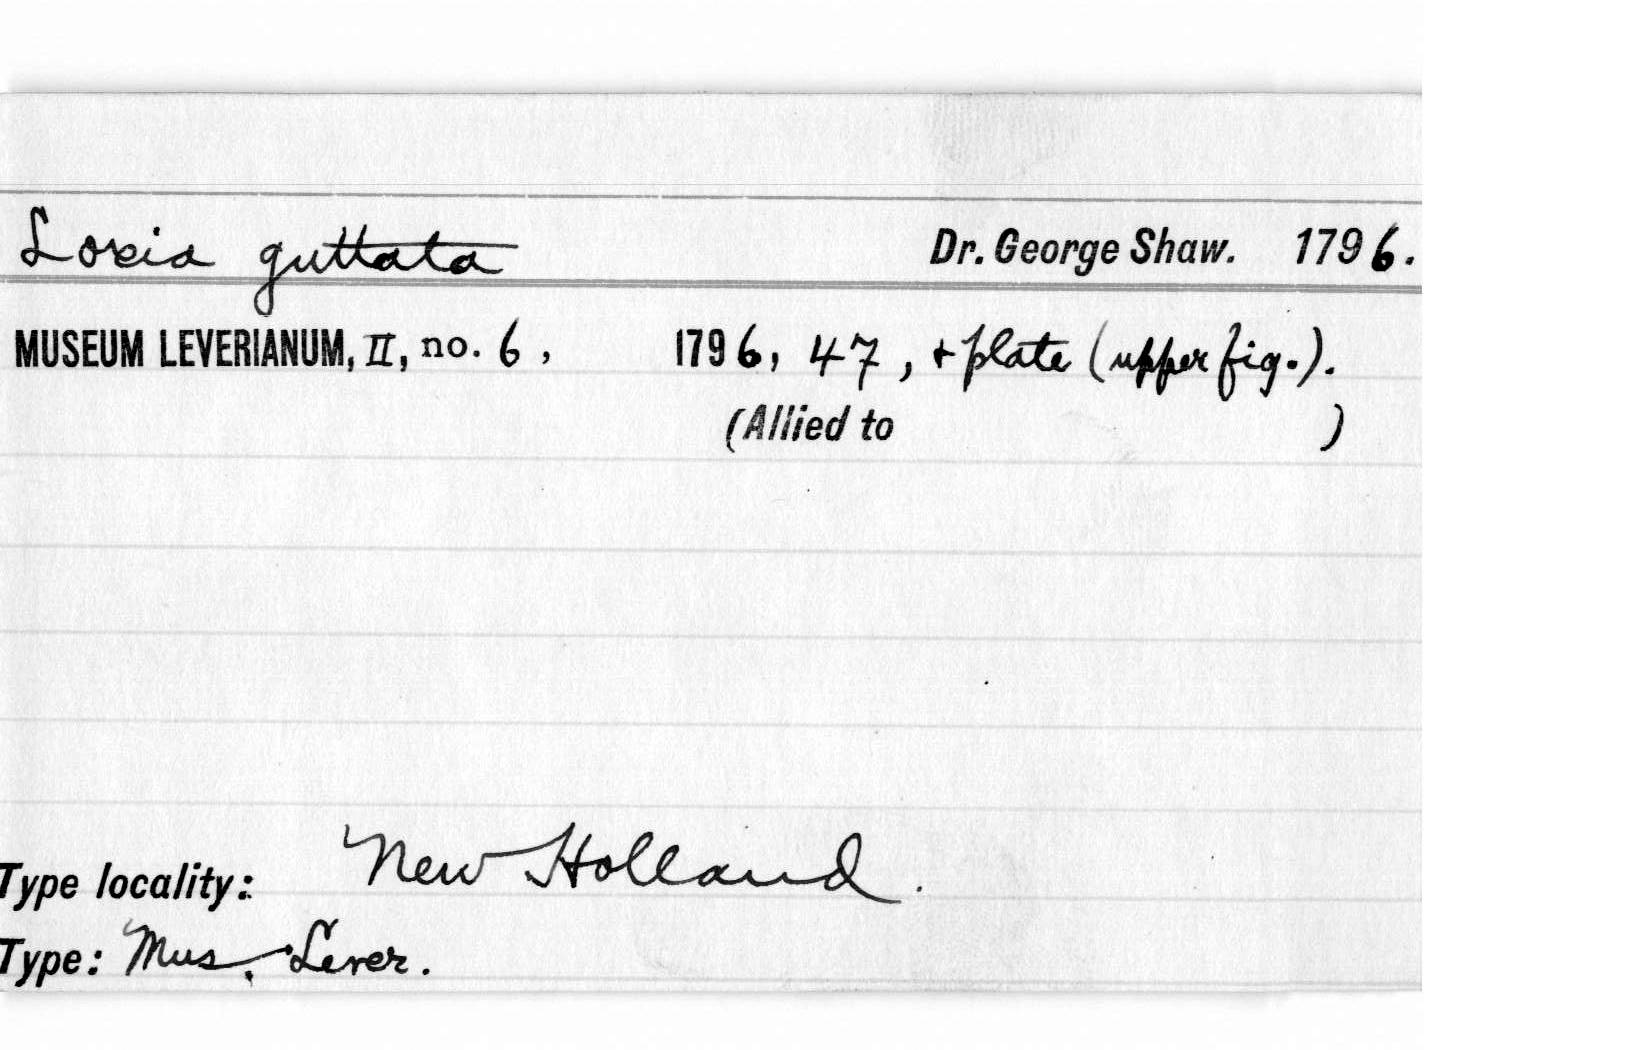 Loxia guttata Dr. George Shaw. 1796.
MUSEUM LEVERIANUM, II, no. 6, 1796, 47, + plate (upper fig.).
(Allied to )
Type locality: New Holland.
Type: Mus. Lever.